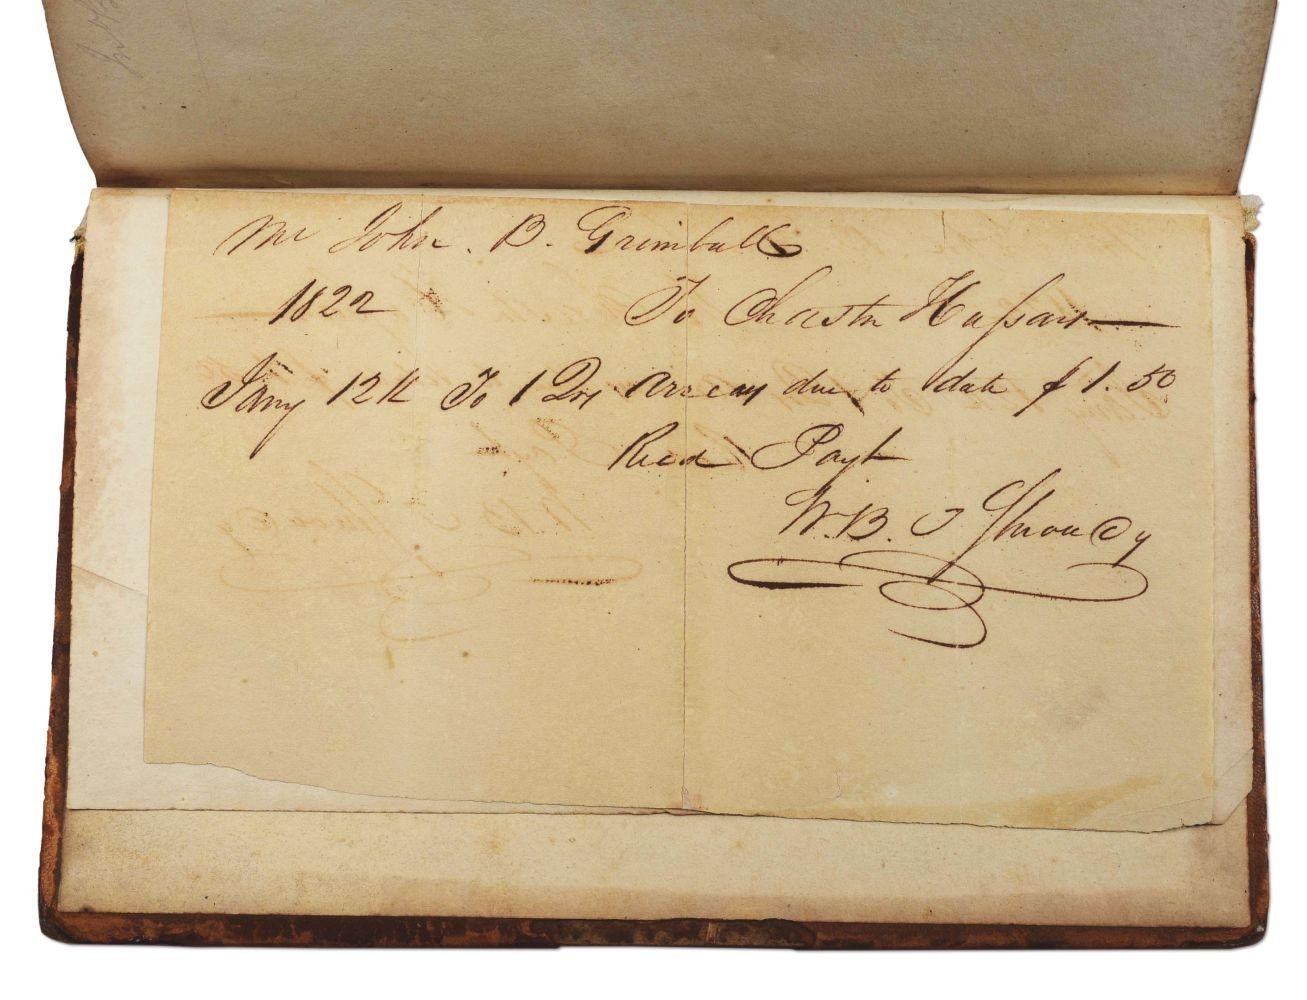 Mr John. B. Grimball
1822 To Chastn Hussars
Jany 12th To 1 Qrs Arrears due to date $ 1.50
Recd Payt
W. B. T